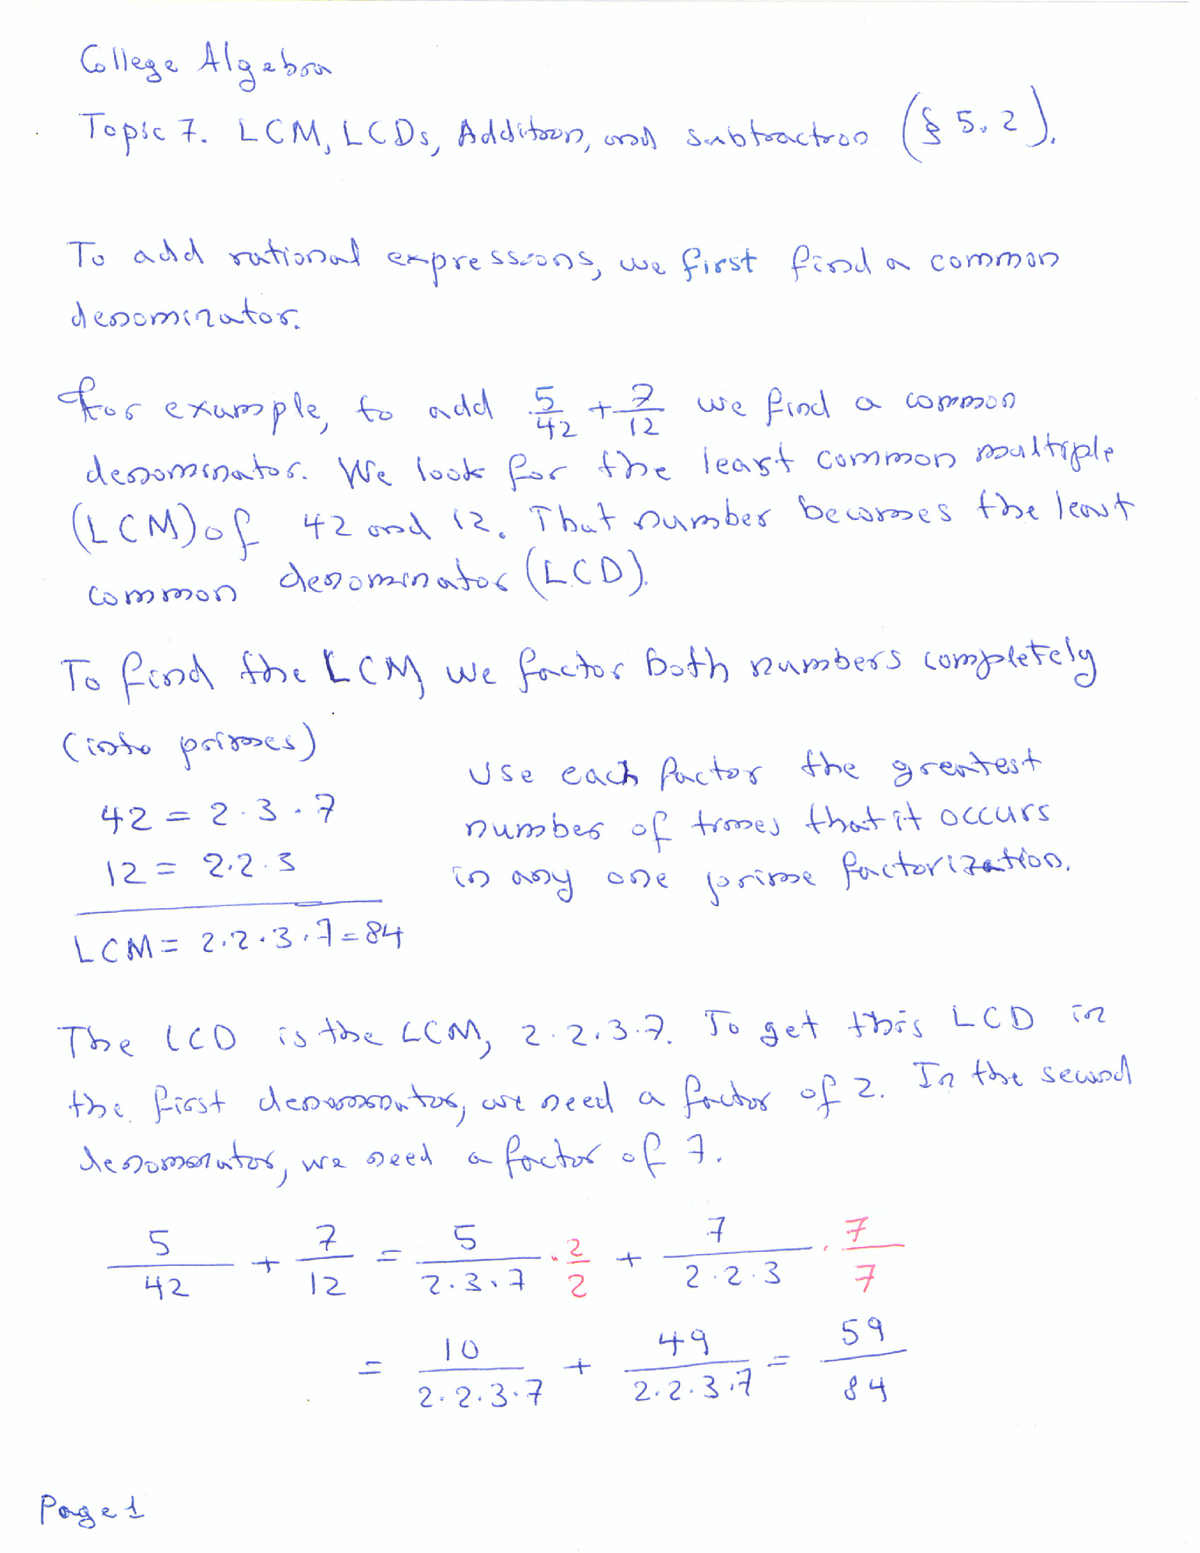 College Algebra
Topic 7. LCM, LCDs, Addition, and subtraction (§ 5.2).
To add rational expressions, we first find a common
denominator.
For example, to add 5/42 + 7/12 we find a common
denominator. We look for the least common multiple
(LCM) of 42 and 12. That number becomes the least
common denominator (LCD).
To find the LCM, we factor both numbers completely
(into primes)
42 = 2·3·7
12 = 2·2·3
LCM = 2·2·3·7 = 84
Use each factor the greatest
number of times that it occurs
in any one prime factorization.
The LCD is the LCM, 2·2·3·7. To get this LCD in
the first denominator, we need a factor of 2. In the second
denominator, we need a factor of 7.
5/42 + 7/12 = 5/(2·3·7) · 2/2 + 7/(2·2·3) · 7/7
= 10/(2·2·3·7) + 49/(2·2·3·7) = 59/84
Page 1